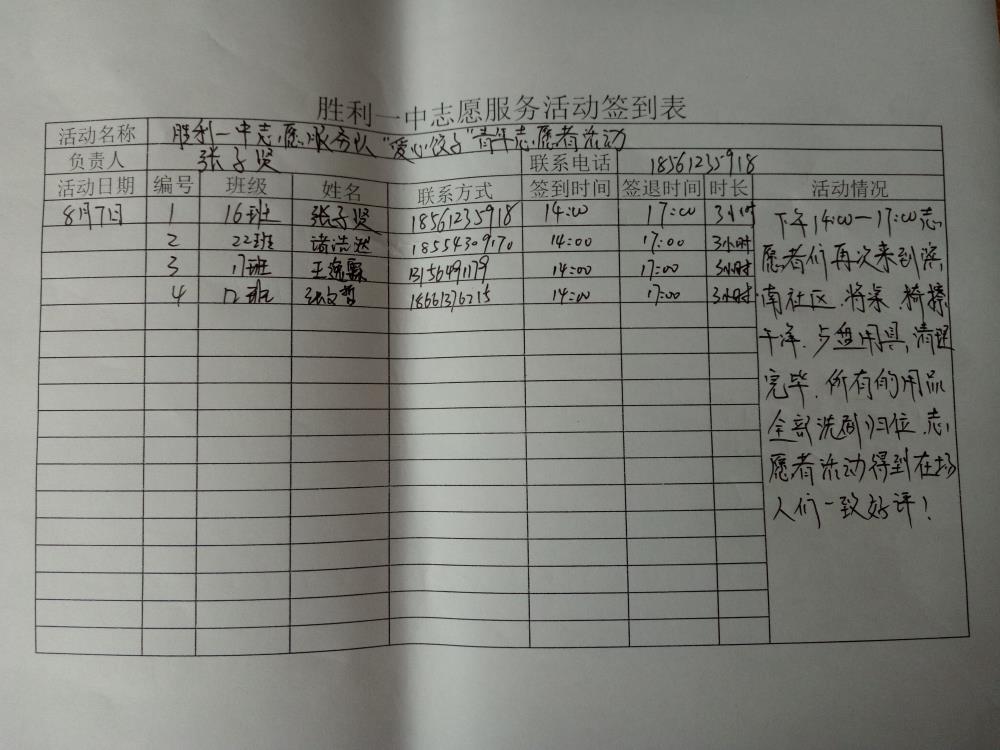 胜利一中志愿服务活动签到表
活动名称 胜利一中志愿服务队“爱心饺子”青年志愿者活动
负责人 张子贤 联系电话 18561235918
活动日期 编号 班级 姓名 联系方式 签到时间 签退时间 时长 活动情况
8月7日 1 16班 张子贤 18561235918 14:00 17:00 3小时
2 22班 诸浩 18554309170 14:00 17:00 3小时
3 17班 王 13156491179 14:00 17:00 3小时
4 12班 张文哲 18661376215 14:00 17:00 3小时
下午14:00—17:00志
愿者们再次来到滨
南社区,将桌、椅擦
干净,与盘用具,清理
完毕,所有的用品
全部洗刷归位,志
愿者活动得到在场
人们一致好评!